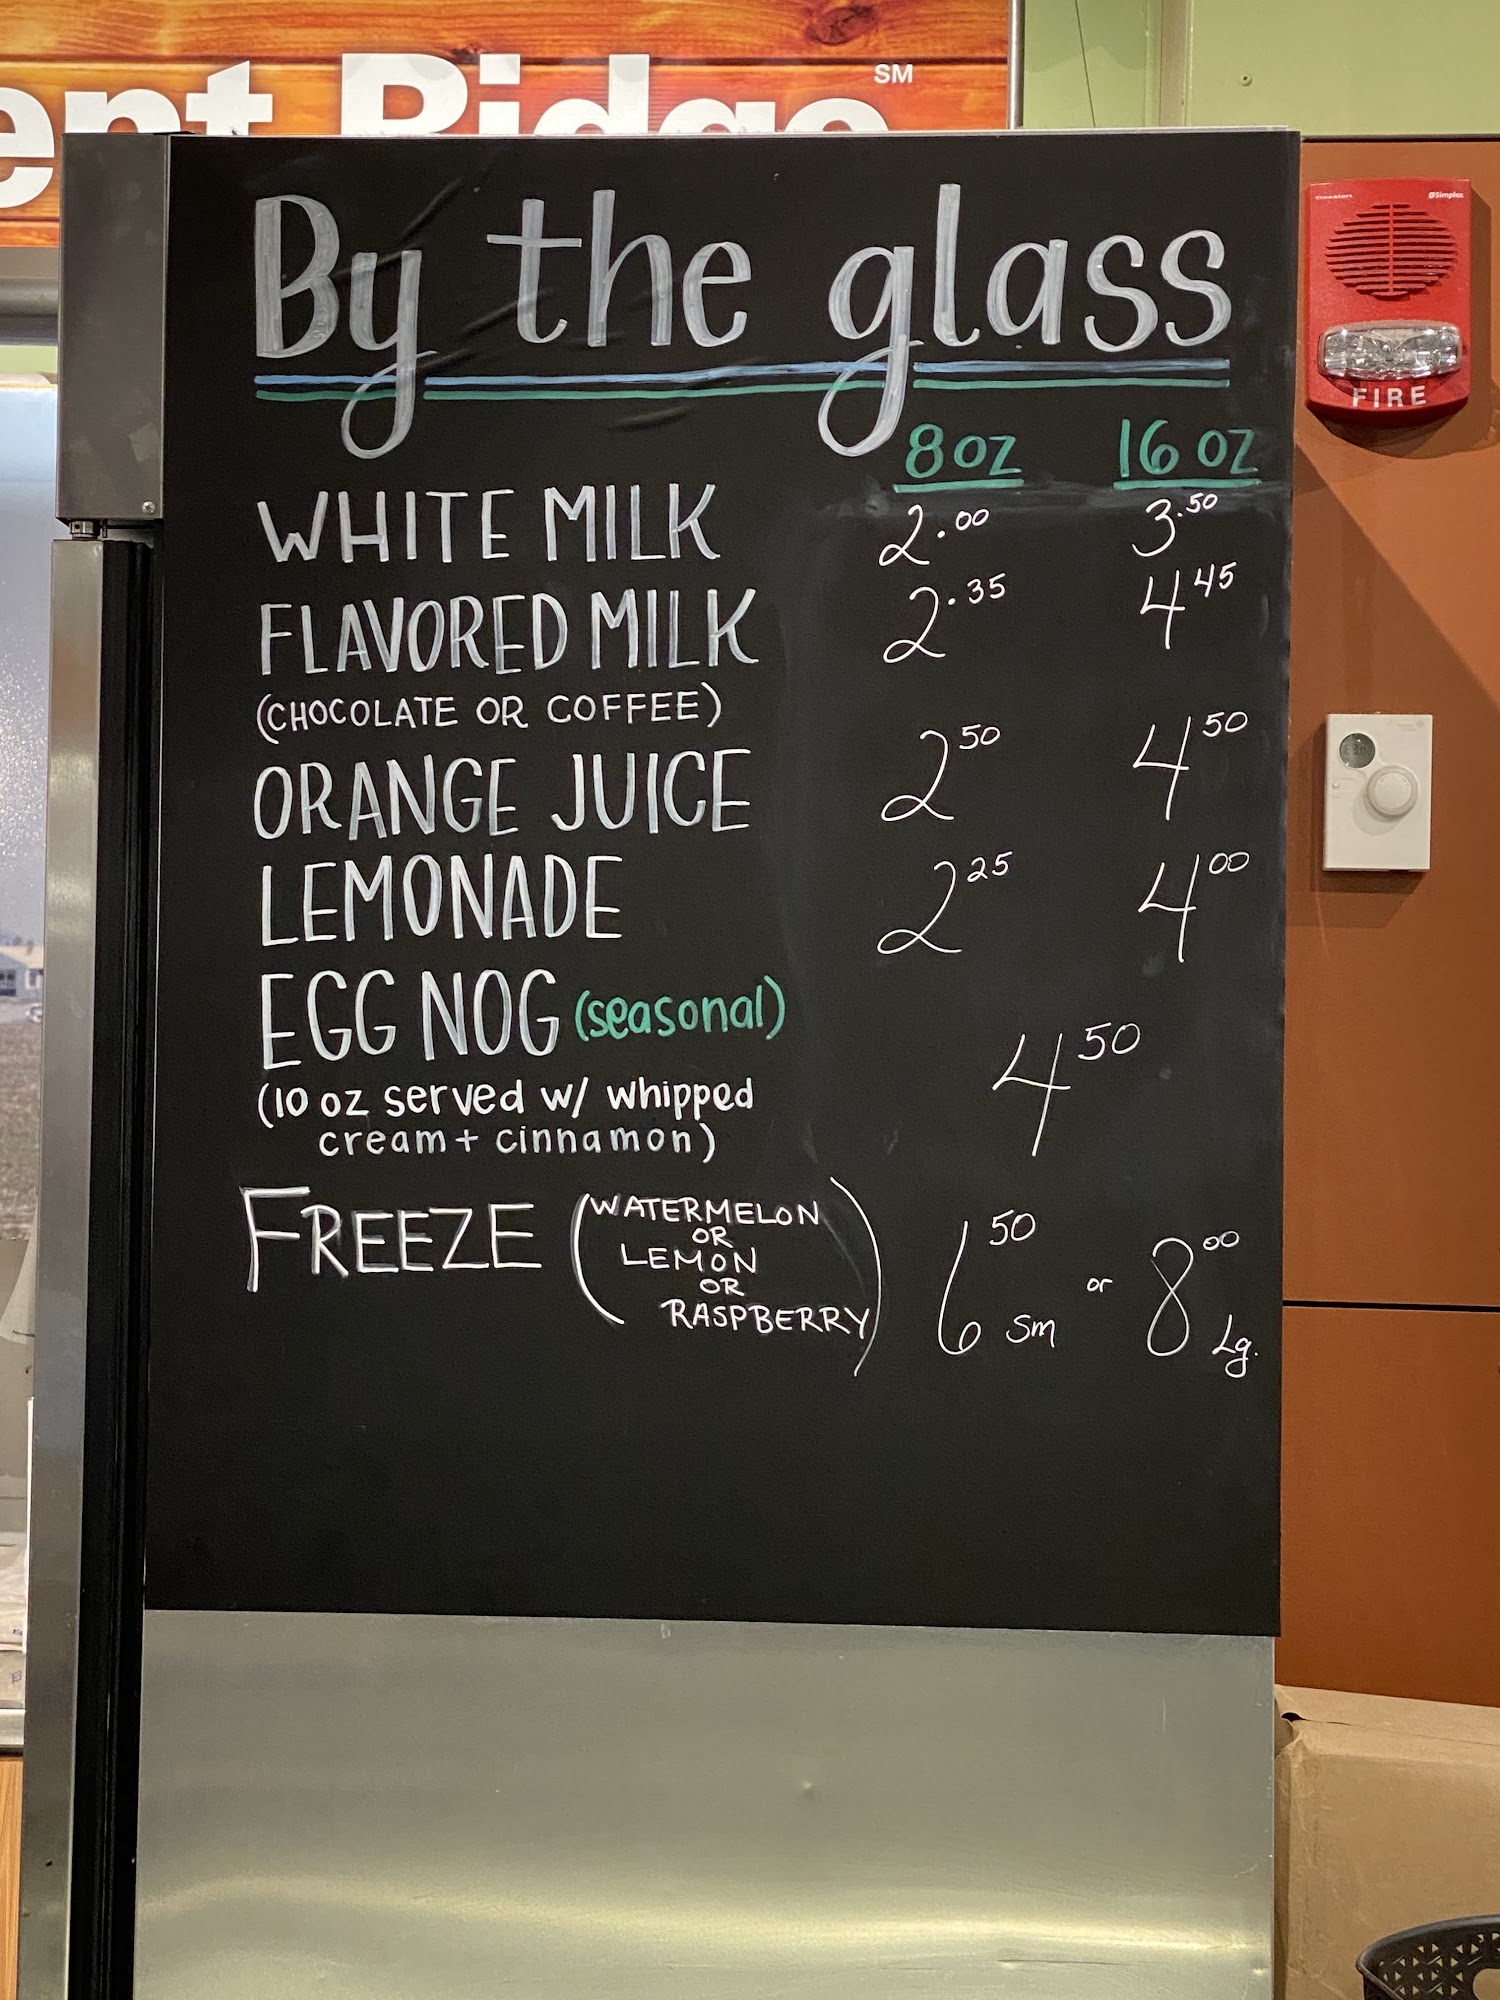 ent Ridge SM
By the glass
8 oz 16 oz
WHITE MILK 2.00 3.50
FLAVORED MILK 2.35 4 45
(CHOCOLATE OR COFFEE)
ORANGE JUICE 2 50 4 50
LEMONADE 2 25 4 00
EGG NOG (seasonal) 4 50
(10 oz served w/ whipped
cream + cinnamon)
FREEZE (WATERMELON
OR
LEMON
OR
RASPBERRY) 6 50 Sm or 8 00 Lg.
Simplex
FIRE